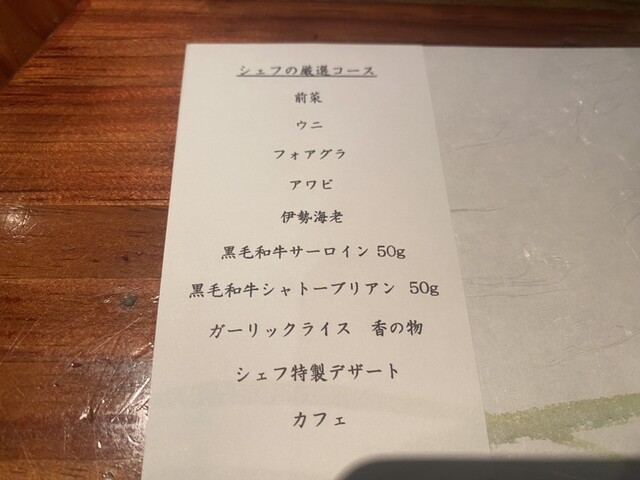 シェフの厳選コース
前菜
ウニ
フォアグラ
アワビ
伊勢海老
黒毛和牛サーロイン 50g
黒毛和牛シャトーブリアン 50g
ガーリックライス　香の物
シェフ特製デザート
カフェ